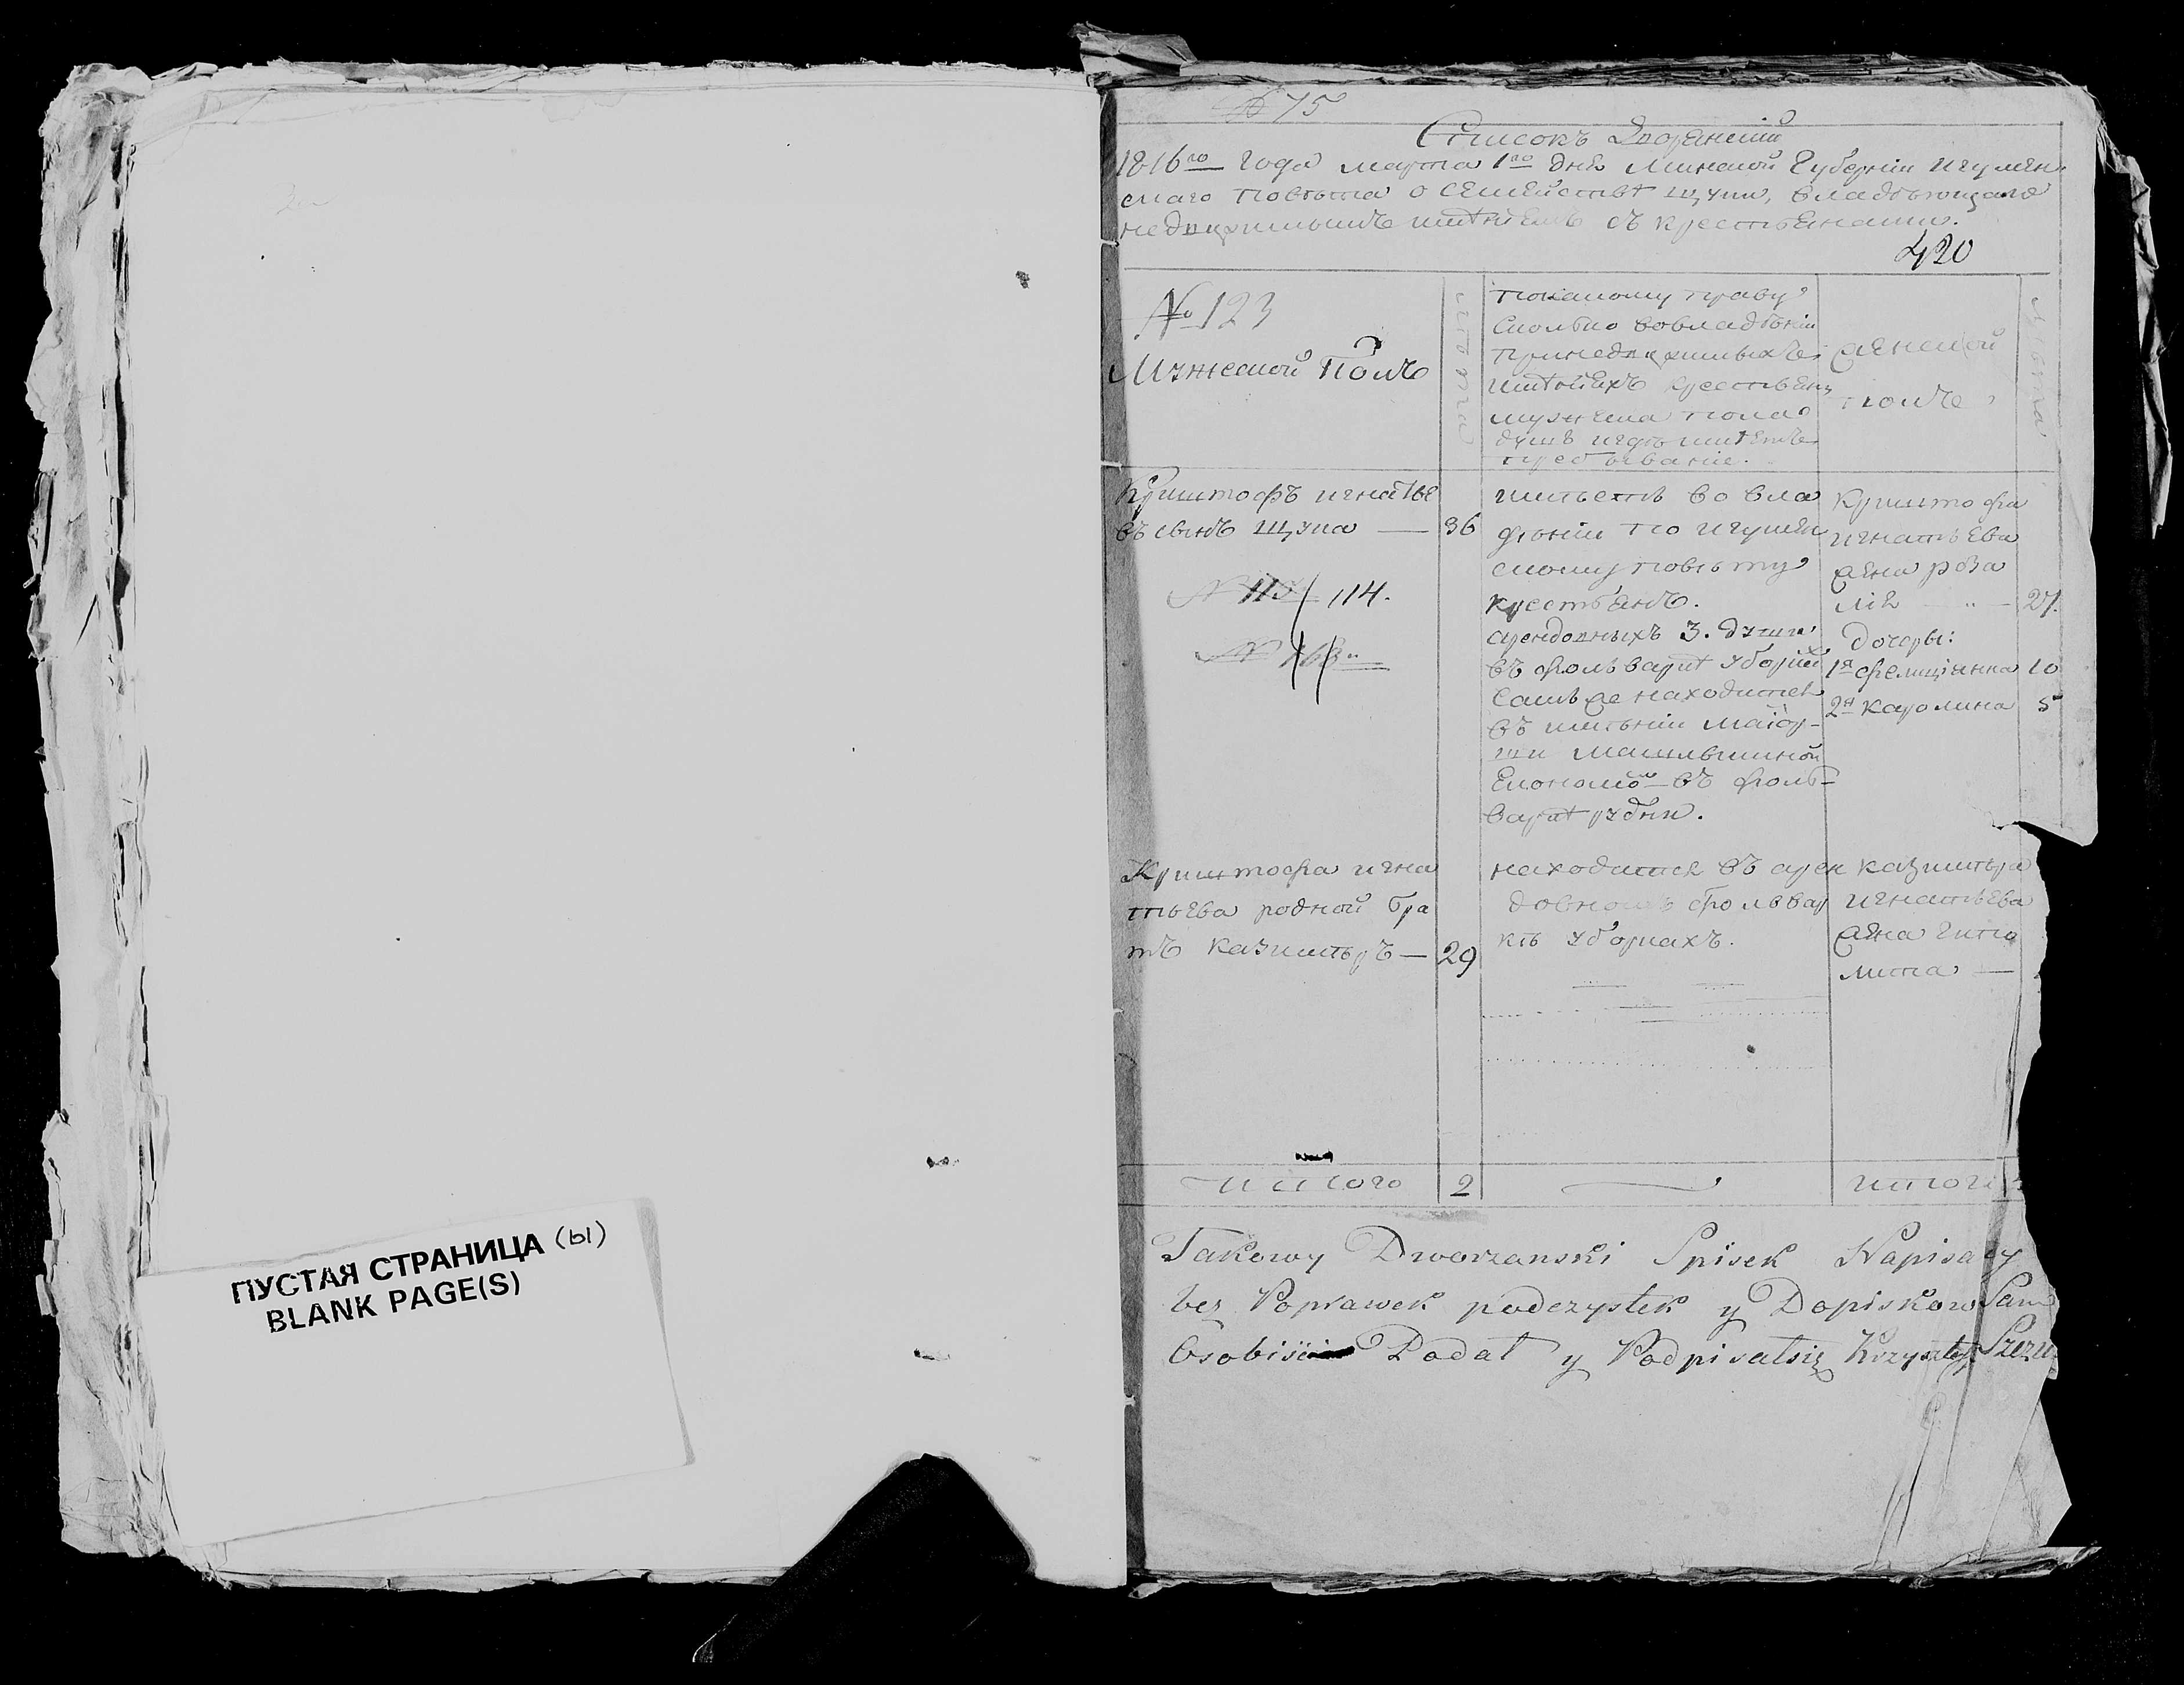 ПУСТАЯ СТРАНИЦА (ы)
BLANK PAGE(S)
75
Списокъ Дворянскій
1816го Года марта 1го дня Минской Губерніи Игумен
скаго повѣта о семействѣ щуки, владѣющаго
недвижимымъ имѣніемъ съ крестьянами.
420
№ 123
Мужеской Полъ
лѣта
покакому праву
сколько вовладѣніи
принедвижимыхъ
имѣніяхъ крестьянъ
мужеска пола
душъ игдѣ имѣетъ
пребываніе.
Женской
полъ
лѣта
Криштофъ игнатье
въ сынъ щука — 36
№ 115 / 114.
имѣетъ во вла
дѣніи по игумен
скому повѣту
крестьянъ.
арендовныхъ 3. души
въ фольваркѣ уборки
самъ же находится
въ имѣніи
въ фоль-
варкѣ
Криштофа
игнатьева
жена роза
лія — 27.
дочеры:
1я фелициянна 10
2я Каролина 5
Криштофа игна
тьева родной бра
тъ казимѣръ — 29
находится въ арен
довномъ фольвар
кѣ уборкахъ.
казимѣра
игнатьева
жена гипо
лита —
итого 2
итого
Takowy Dworzanski Spisek Napisany
bez Poprawek podczystek y Dopiskow Sam
Osobiście Podał y Podpisałsię Krzysztof Szczu